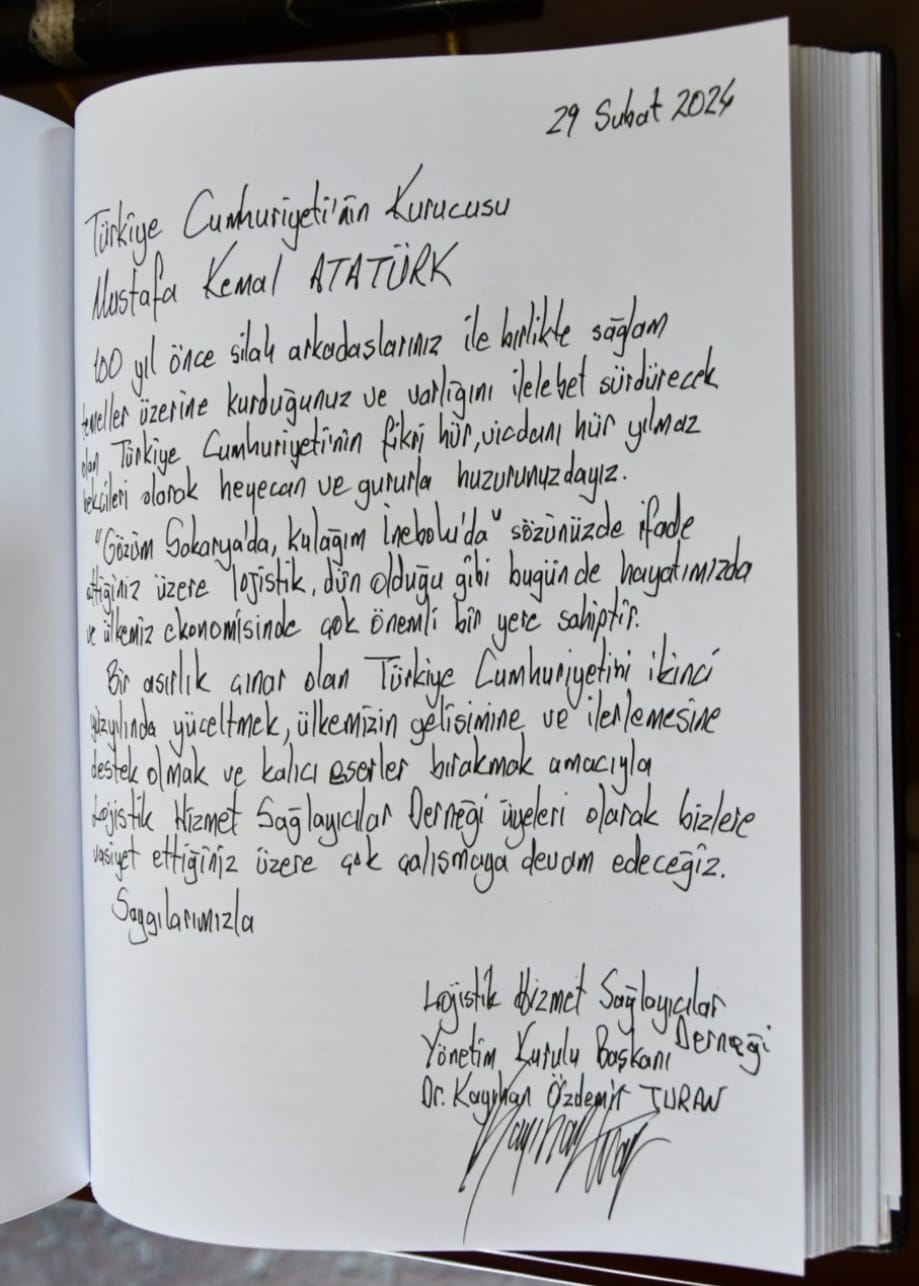 29 Şubat 2024
Türkiye Cumhuriyeti'nin Kurucusu
Mustafa Kemal ATATÜRK
100 yıl önce silah arkadaşlarınız ile birlikte sağlam
temeller üzerine kurduğunuz ve varlığını ilelebet sürdürecek
olan Türkiye Cumhuriyeti'nin fikri hür, vicdanı hür yılmaz
bekçileri olarak heyecan ve gururla huzurunuzdayız.
"Gözüm Sakarya'da, kulağım İnebolu'da" sözünüzde ifade
ettiğiniz üzere lojistik, dün olduğu gibi bugün de hayatımızda
ve ülkemiz ekonomisinde çok önemli bir yere sahiptir.
Bir asırlık çınar olan Türkiye Cumhuriyetini ikinci
yüzyılında yüceltmek, ülkemizin gelişimine ve ilerlemesine
destek olmak ve kalıcı eserler bırakmak amacıyla
Lojistik Hizmet Sağlayıcılar Derneği üyeleri olarak bizlere
vasiyet ettiğiniz üzere çok çalışmaya devam edeceğiz.
Saygılarımızla
Lojistik Hizmet Sağlayıcılar
Derneği
Yönetim Kurulu Başkanı
Dr. Kayıhan Özdemir TURAN